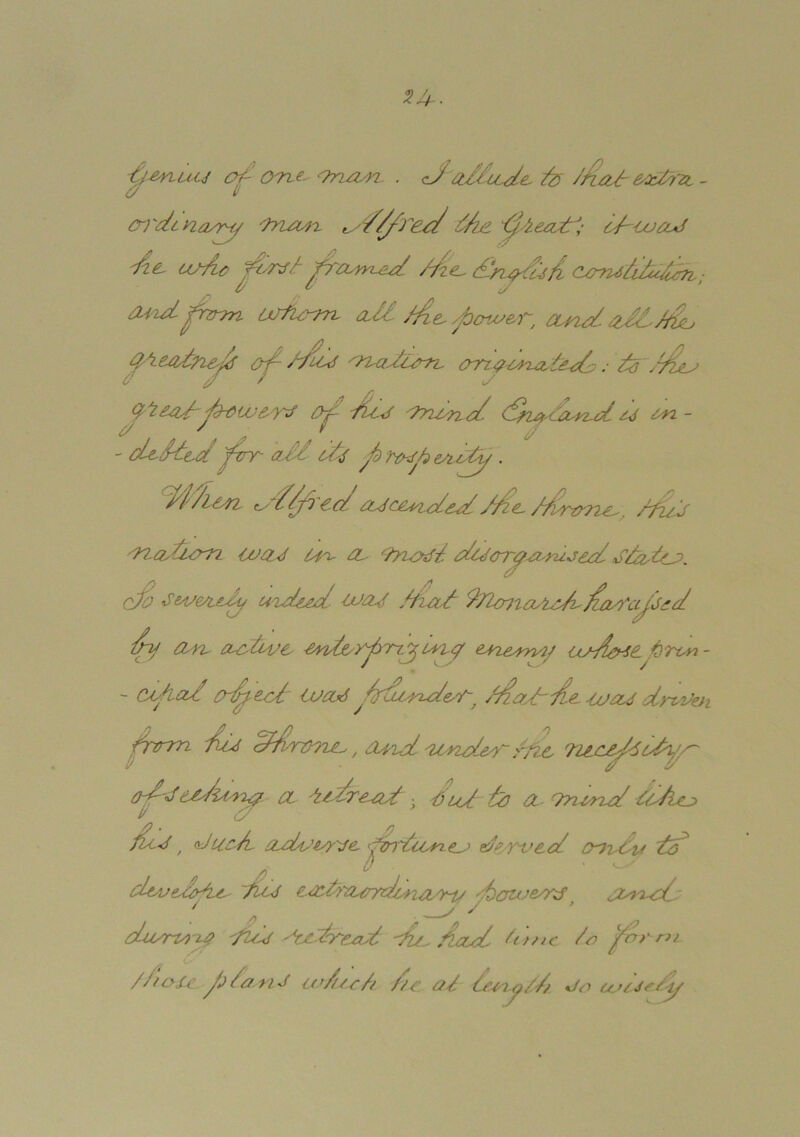 24.
Genius of one man . I allude to that extra -
ordinary man Alfred the Great; it was
he who first framed the English constitution;
and from whom all the power, and all the
greatness of this nation originated: to the
great powers of his mind England is in -
- debted for all its prosperity .
When Alfred ascended the throne, this
nation was in a most disorganised state.
So severely indeed was that Monarch harassed
by an active enterprizing enemy whose prin -
- cipal object was plunder, that he was driven
from his Throne, and under the necessity
of seeking a retreat; but to a mind like
his, such adverse fortune served only to
develope his extraordinary powers, and
during his retreat he had time to form
those plans which he at length so wisely